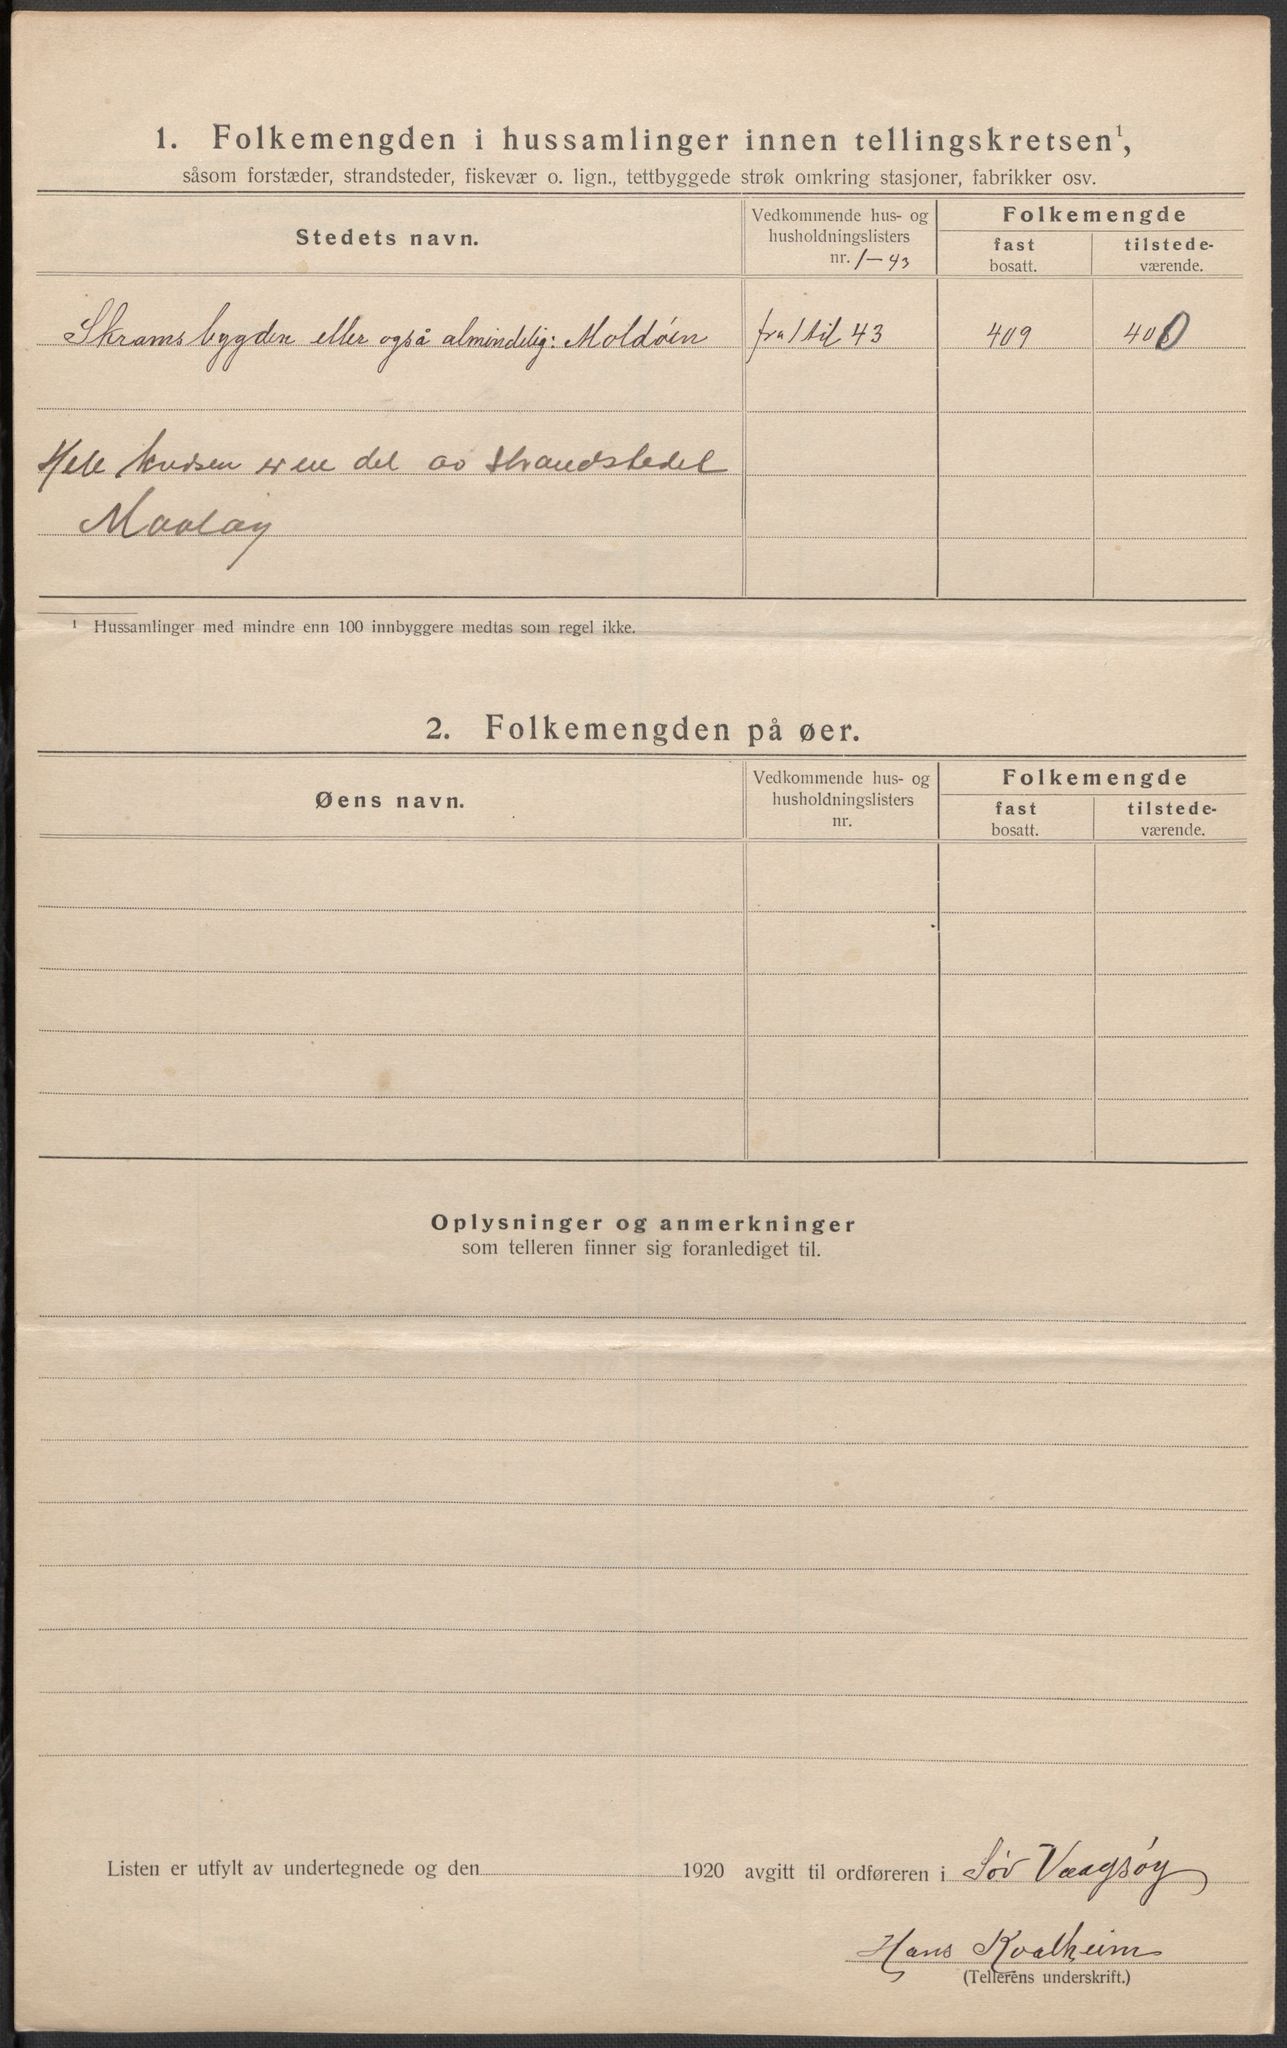 1. Folkemengden i hussamlinger innen tellingskretsen¹,
såsom forstæder, strandsteder, fiskevær o. lign., tettbyggede strøk omkring stasjoner, fabrikker osv.
Stedets navn.
Vedkommende hus- og
husholdningslisters
nr. 1–43
Folkemengde
fast
bosatt.
tilstede-
værende.
Skramsbygden eller også almindelig: Moldöen fra 1 til 43 409 400
Hele kretsen er en del av strandstedet
Maaløy
¹ Hussamlinger med mindre enn 100 innbyggere medtas som regel ikke.
2. Folkemengden på øer.
Øens navn.
Vedkommende hus- og
husholdningslisters
nr.
Folkemengde
fast
bosatt.
tilstede-
værende.
Oplysninger og anmerkninger
som telleren finner sig foranlediget til.
Listen er utfylt av undertegnede og den 1920 avgitt til ordføreren i Sör Vaagsöy
Hans Kvalheim
(Tellerens underskrift.)